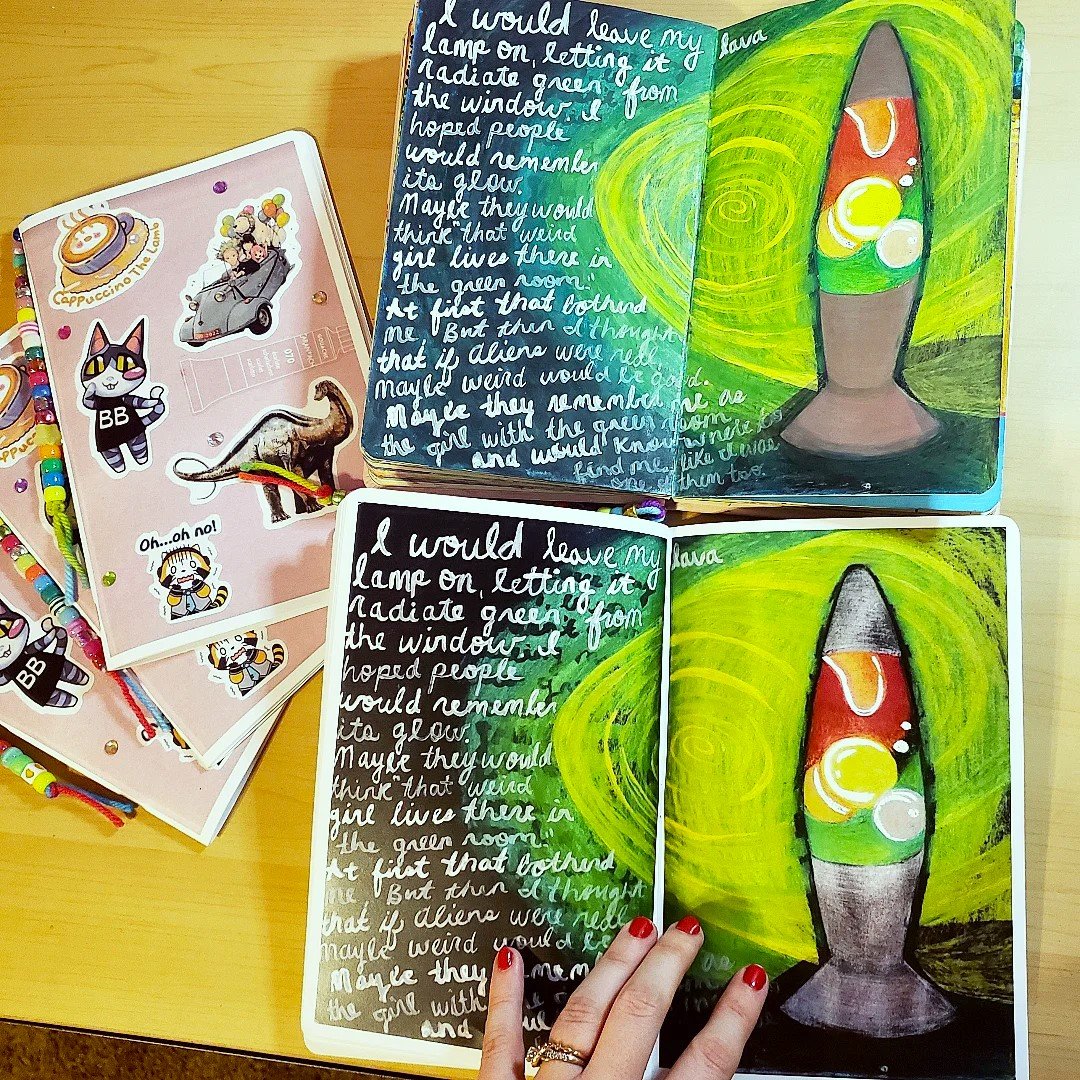 I would leave my
lamp on, letting it
radiate green from
the window. I
hoped people
would remember
its glow.
Maybe they would
think "that weird
girl lives there in
the green room."
At first that bothered
me. But then I thought
that if aliens were real
maybe weird would be good.
Maybe they remembered me as
the girl with the green room
and would know where to
find me, like I was
one of them too.
lava
I would leave my
lamp on, letting it
radiate green from
the window. I
hoped people
would remember
its glow.
Maybe they would
think "that weird
girl lives there in
the green room."
At first that bothered
me. But then I thought
that if aliens were real
maybe weird would be
Maybe they
as
the girl with the green
and would
lava
Cappuccino The Lamb
BB
070
Oh...oh no!
BB